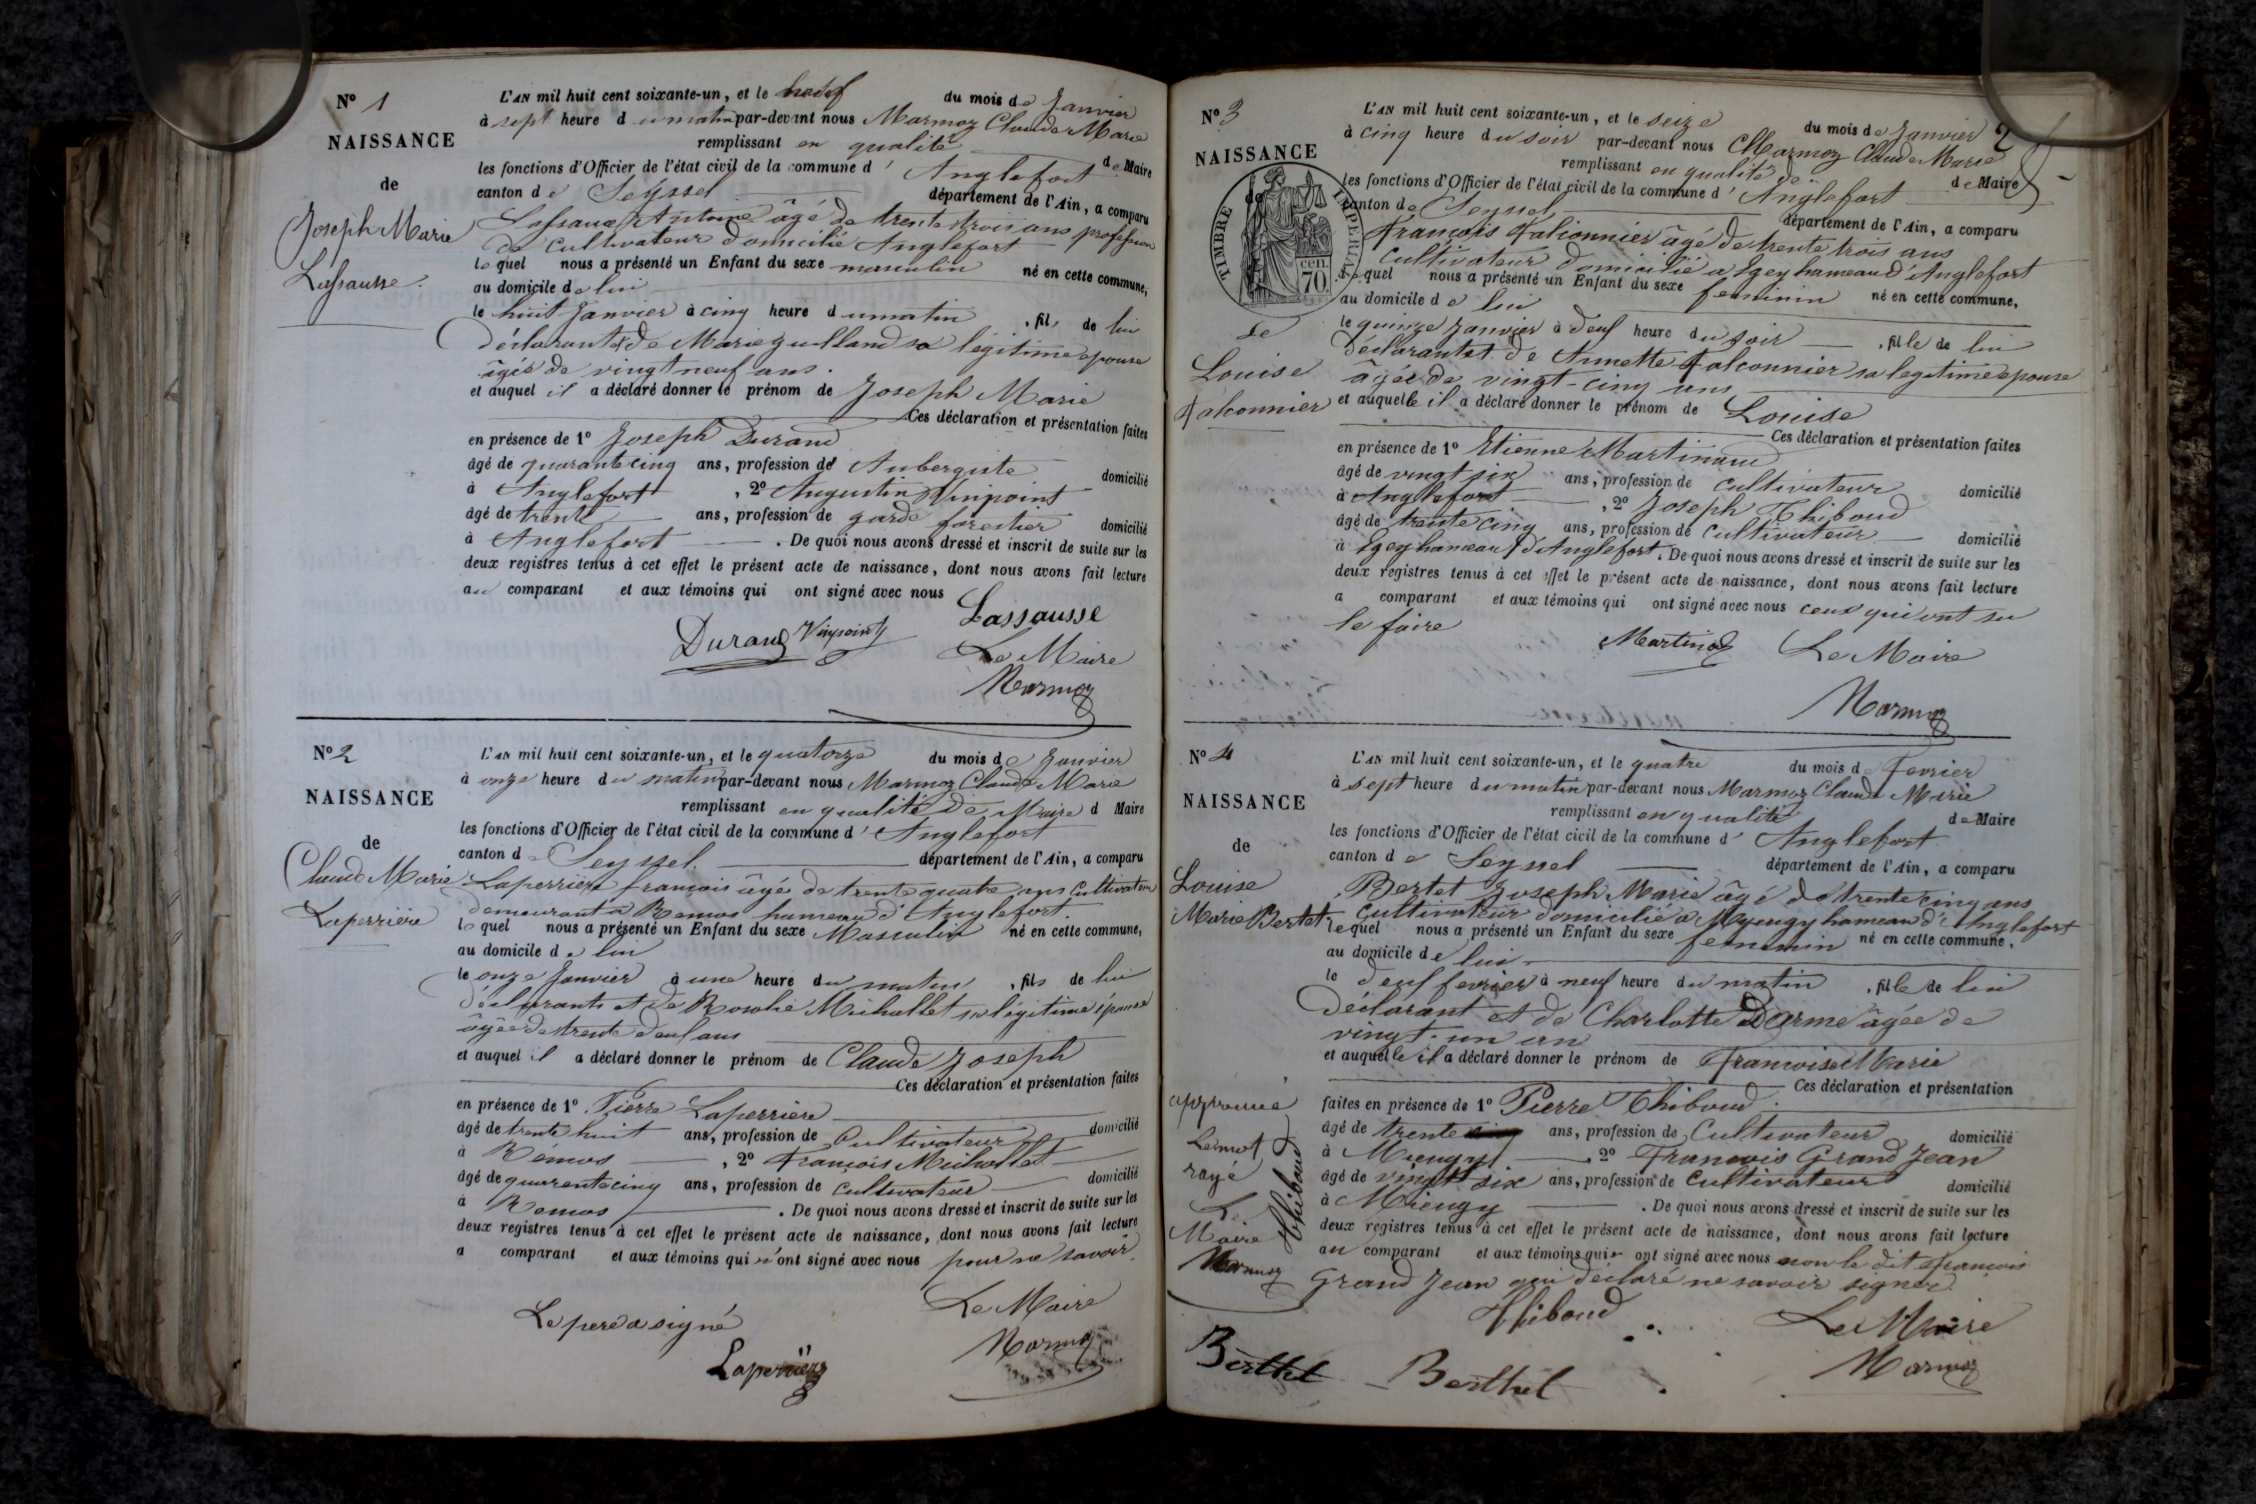 N° 1
NAISSANCE
de
Joseph Marie
Lassausse.
L'AN mil huit cent soixante-un, et le du mois de Janvier
à sept heure du matin par-devant nous Marmoz Claude Marie
remplissant en qualité de Maire
les fonctions d'Officier de l'état civil de la commune d'Anglefort
canton de Seyssel département de l'Ain, a comparu
Lassausse Antoine âgé de trente trois ans profession
de cultivateur domicilié Anglefort
lequel nous a présenté un Enfant du sexe masculin né en cette commune,
au domicile de lui
le huit Janvier à cinq heure du matin, fils de lui
déclarant & de Marie sa légitime épouse
âgée de vingt neuf ans.
et auquel il a déclaré donner le prénom de Joseph Marie
Ces déclaration et présentation faites
en présence de 1° Joseph Durand
âgé de quarante cinq ans, profession de Aubergiste domicilié
à Anglefort, 2° Augustin Vinpoint
âgé de trente ans, profession de garde forestier domicilié
à Anglefort. De quoi nous avons dressé et inscrit de suite sur les
deux registres tenus à cet effet le présent acte de naissance, dont nous avons fait lecture
au comparant et aux témoins qui ont signé avec nous
Lassausse
Durand Vinpoint
Le Maire
Marmoz
N° 2
NAISSANCE
de
Claude Marie
Laperrière
L'AN mil huit cent soixante-un, et le quatorze du mois de Janvier
à onze heure du matin par-devant nous Marmoz Claude Marie
remplissant en qualité de Maire d Maire
les fonctions d'Officier de l'état civil de la commune d'Anglefort
canton de Seyssel. département de l'Ain, a comparu
Laperrière françois âgé de trente quatre ans cultivateur
demeurant à Remos hameau d'Anglefort.
lequel nous a présenté un Enfant du sexe Masculin né en cette commune,
au domicile de lui
le onze Janvier à une heure du matin, fils de lui
déclarant et de Rosalie Michallet sa légitime épouse
âgée de trente deux ans
et auquel il a déclaré donner le prénom de Claude Joseph
Ces déclaration et présentation faites
en présence de 1° Pierre Laperrière
âgé de trente huit ans, profession de Cultivateur domicilié
à Rémos, 2° François Michallet
âgé de quarente cinq ans, profession de cultivateur domicilié
à Remos. De quoi nous avons dressé et inscrit de suite sur les
deux registres tenus à cet effet le présent acte de naissance, dont nous avons fait lecture
a comparant et aux témoins qui n'ont signé avec nous pour ne savoir.
Le pere a signé
Le Maire
Laperrière
Marmoz
2
N° 3
NAISSANCE
de
TIMBRE IMPERIAL
cen.
70.
de
Louise
Falconnier
L'AN mil huit cent soixante-un, et le seize du mois de Janvier
à cinq heure du soir par-devant nous Marmoz Claude Marie
remplissant en qualité de de Maire
les fonctions d'Officier de l'état civil de la commune d'Anglefort
canton de Seyssel département de l'Ain, a comparu
François Falconnier âgé de trente trois ans
Cultivateur domicilié a hameau d'Anglefort
lequel nous a présenté un Enfant du sexe feminin né en cette commune,
au domicile de lui
le quinze Janvier à deuf heure du soir, fille de lui
déclarant et de Annette Falconnier sa legitime epouse
âgée de vingt-cinq ans
et auquelle il a déclaré donner le prénom de Louise
Ces déclaration et présentation faites
en présence de 1° Etienne Martinand
âgé de vingt six ans, profession de cultivateur domicilié
à Anglefort, 2° Joseph Thiboud
âgé de trente cinq ans, profession de Cultivateur domicilié
à hameau d'Anglefort. De quoi nous avons dressé et inscrit de suite sur les
deux registres tenus à cet effet le présent acte de naissance, dont nous avons fait lecture
a comparant et aux témoins qui ont signé avec nous ceux qui ont su
le faire
Martinod
Le Maire
Marmoz
N° 4
NAISSANCE
de
Louise
Marie Bertet.
L'AN mil huit cent soixante-un, et le quatre du mois de Fevrier
à sept heure du matin par-devant nous Marmoz Claude Marie
remplissant en qualité de Maire
les fonctions d'Officier de l'état civil de la commune d'Anglefort
canton de Seyssel département de l'Ain, a comparu
Bertet Joseph Marie âgé de trente cinq ans
Cultivateur domicilié a hameau d'Anglefort
lequel nous a présenté un Enfant du sexe feminin né en cette commune,
au domicile de lui
le deuf fevrier à neuf heure du matin, fille de lui
Déclarant et de Charlotte Darme âgée de
vingt un an
et auquelle il a déclaré donner le prénom de Francoise Marie
Ces déclaration et présentation
faites en présence de 1° Pierre Thiboud.
âgé de trente ans, profession de Cultivateur domicilié
à Miengy, 2° Francois Grand Jean
âgé de vingt six ans, profession de Cultivateur domicilié
à Miengy. De quoi nous avons dressé et inscrit de suite sur les
deux registres tenus à cet effet le présent acte de naissance, dont nous avons fait lecture
au comparant et aux témoins qui ont signé avec nous non le dit françois
Grand Jean qui déclaré ne savoir signer
approuvé
Le mot
rayé
Le
Maire
Marmoz
Thiboud
Thiboud
Le Maire
Berthet Berthet
Marmoz